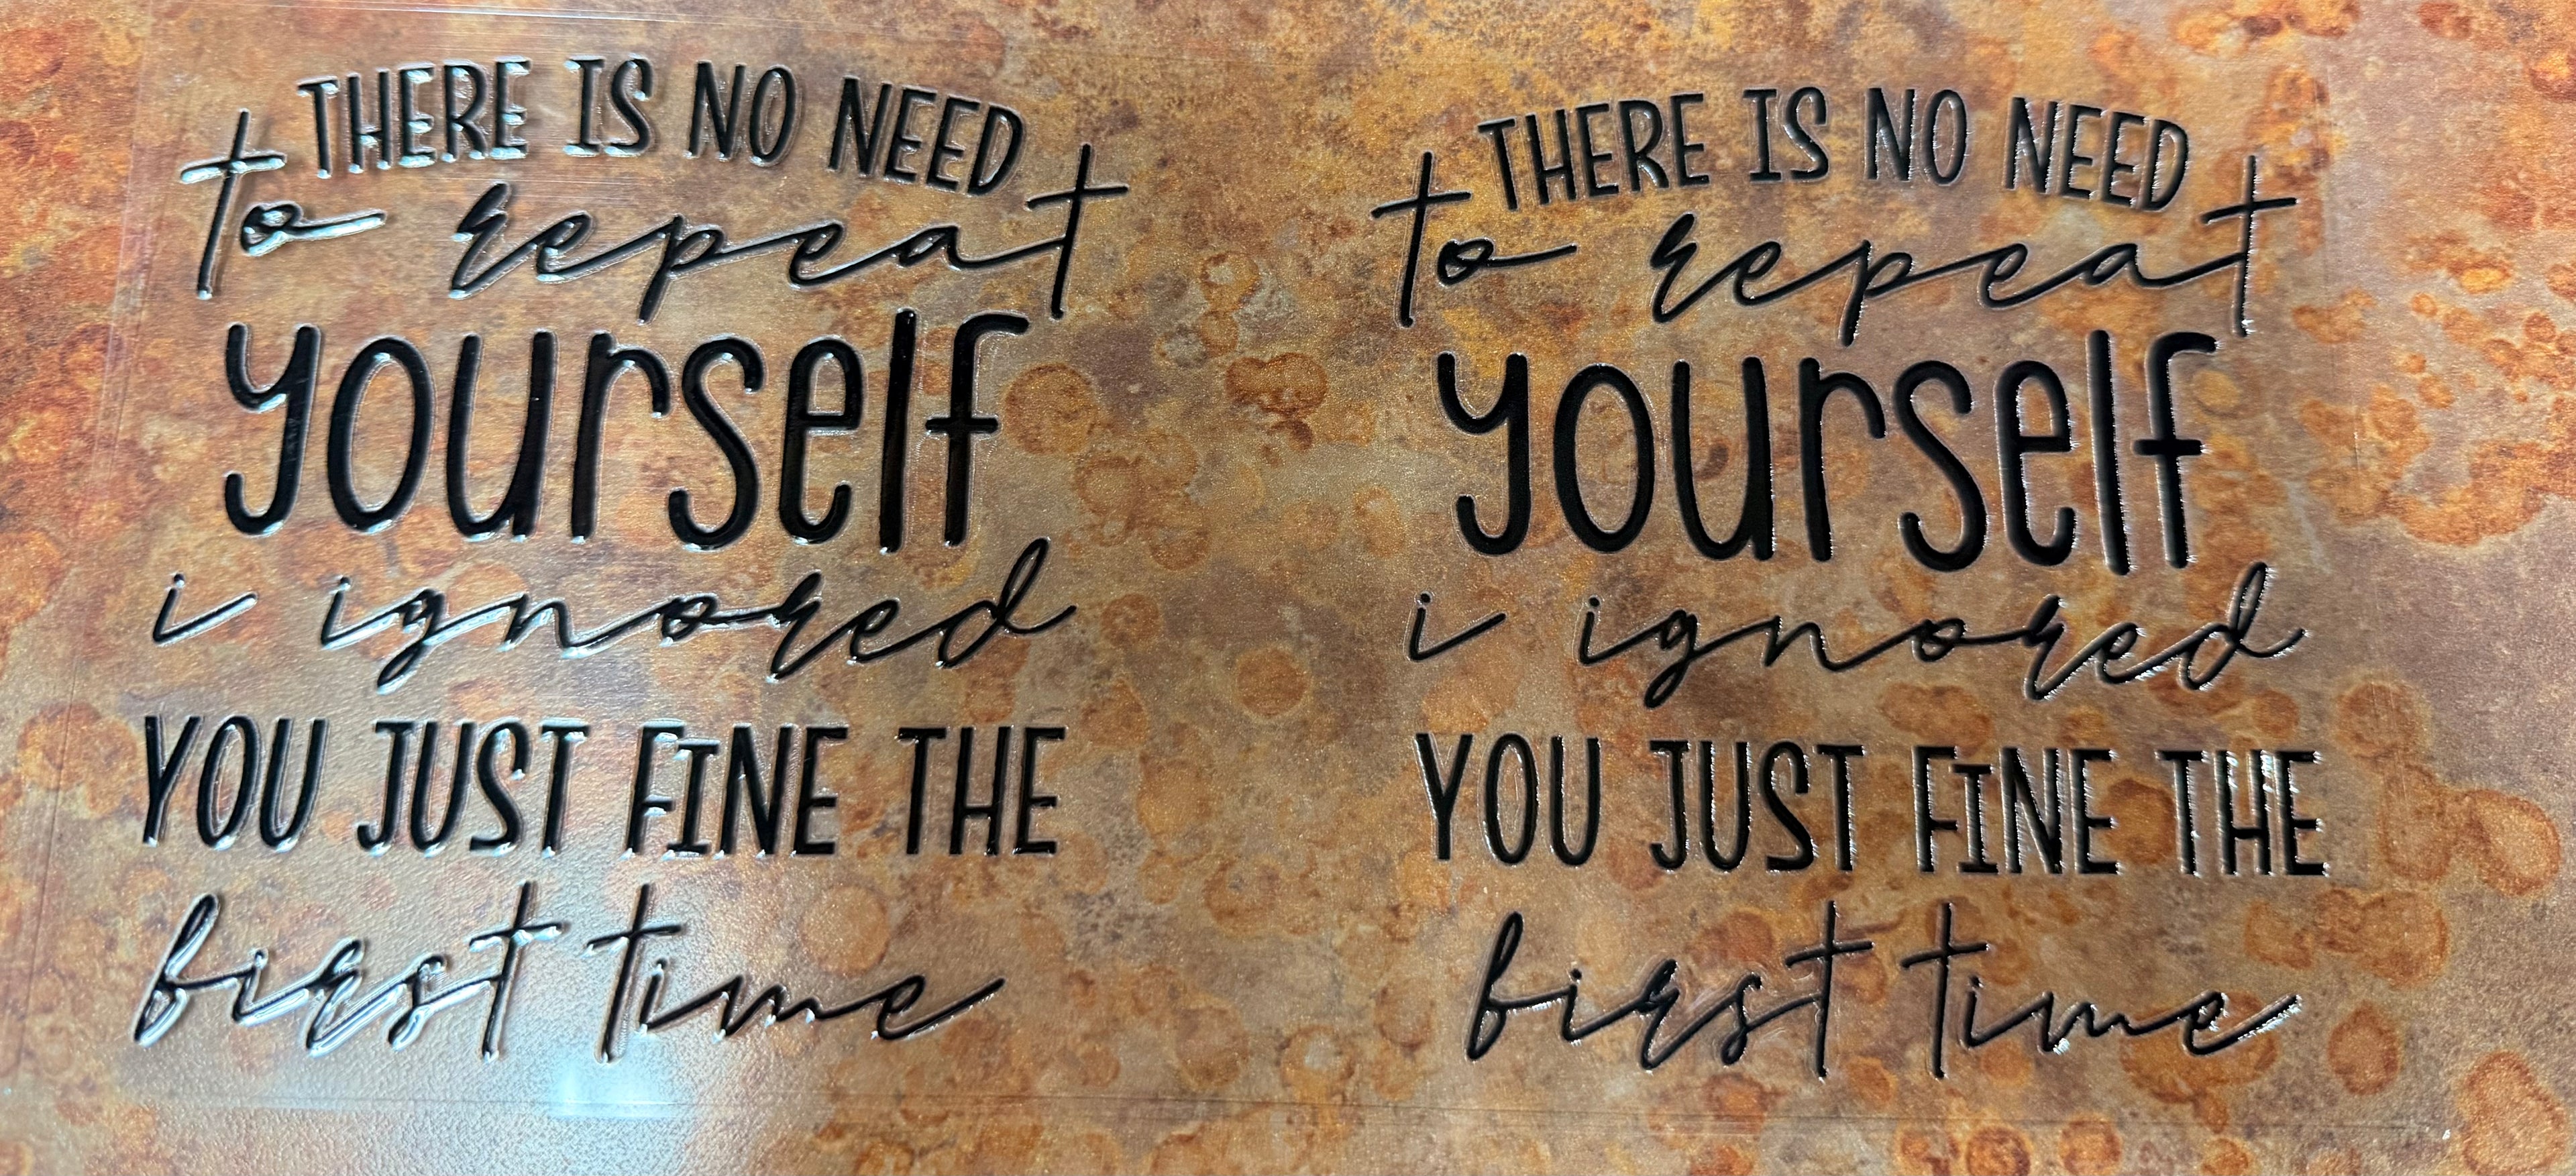 THERE IS NO NEED
to repeat
yourself
i ignored
YOU JUST FINE THE
first time
THERE IS NO NEED
to repeat
yourself
i ignored
YOU JUST FINE THE
first time